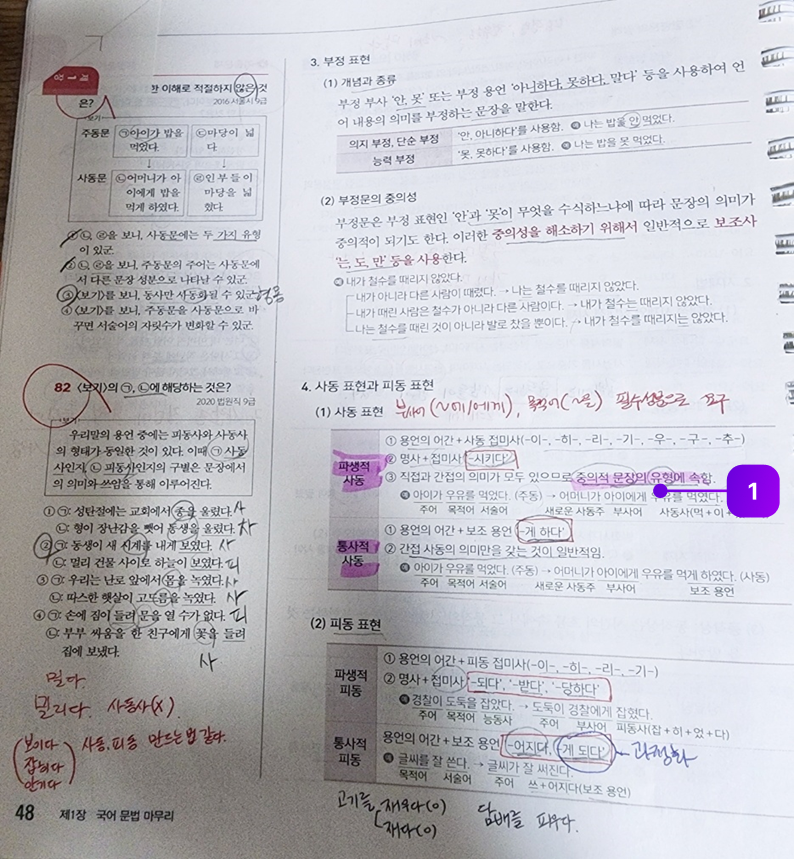 한 이해로 적절하지 않은 것
은?
2016 서울시 9급
보기
주동문
㉠아이가 밥을
먹었다.
㉢마당이 넓
다.
↓
↓
사동문
㉡어머니가 아
이에게 밥을
먹게 하였다.
㉣인부들이
마당을 넓
혔다.
① ㉡, ㉣을 보니, 사동문에는 두 가지 유형
이 있군.
② ㉡, ㉣을 보니, 주동문의 주어는 사동문에
서 다른 문장 성분으로 나타날 수 있군.
③ 〈보기〉를 보니, 동사만 사동화될 수 있군.
④ 〈보기〉를 보니, 주동문을 사동문으로 바
꾸면 서술어의 자릿수가 변화할 수 있군.
82 〈보기〉의 ㉠, ㉡에 해당하는 것은?
2020 법원직 9급
보기
우리말의 용언 중에는 피동사와 사동사
의 형태가 동일한 것이 있다. 이때 ㉠ 사동
사인지, ㉡ 피동사인지의 구별은 문장에서
의 의미와 쓰임을 통해 이루어진다.
① ㉠: 성탄절에는 교회에서 종을 울렸다. 사
㉡: 형이 장난감을 뺏어 동생을 울렸다.
② ㉠: 동생이 새 시계를 내게 보였다. 사
㉡: 멀리 건물 사이로 하늘이 보였다. 피
③ ㉠: 우리는 난로 앞에서 몸을 녹였다. 사
㉡: 따스한 햇살이 고드름을 녹였다. 사
④ ㉠: 손에 짐이 들려 문을 열 수가 없다. 피
㉡: 부부 싸움을 한 친구에게 꽃을 들려
집에 보냈다.
사
밀다.
밀리다. 사동사(X)
보이다
잡히다
안기다
사동, 피동 만드는 법 같다.
48 제1장 국어 문법 마무리
3. 부정 표현
(1) 개념과 종류
부정 부사 '안, 못' 또는 부정 용언 '아니하다, 못하다, 말다' 등을 사용하여 언
어 내용의 의미를 부정하는 문장을 말한다.
의지 부정, 단순 부정
'안, 아니하다'를 사용함. 예 나는 밥을 안 먹었다.
능력 부정
'못, 못하다'를 사용함. 예 나는 밥을 못 먹었다.
(2) 부정문의 중의성
부정문은 부정 표현인 '안'과 '못'이 무엇을 수식하느냐에 따라 문장의 의미가
중의적이 되기도 한다. 이러한 중의성을 해소하기 위해서 일반적으로 보조사
'는, 도, 만' 등을 사용한다.
예 내가 철수를 때리지 않았다.
내가 아니라 다른 사람이 때렸다. → 나는 철수를 때리지 않았다.
내가 때린 사람은 철수가 아니라 다른 사람이다. → 내가 철수는 때리지 않았다.
나는 철수를 때린 것이 아니라 발로 찼을 뿐이다. → 내가 철수를 때리지는 않았다.
4. 사동 표현과 피동 표현
(1) 사동 표현 부사어(~에/에게), 목적어(~을) 필수성분으로 요구
파생적
사동
① 용언의 어간 + 사동 접미사(-이-, -히-, -리-, -기-, -우-, -구-, -추-)
② 명사 + 접미사 '-시키다'
③ 직접과 간접의 의미가 모두 있으므로 중의적 문장의 유형에 속함.
예 아이가 우유를 먹었다. (주동) → 어머니가 아이에게 우유를 먹였다.
주어 목적어 서술어 새로운 사동주 부사어 사동사(먹+이+
1
통사적
사동
① 용언의 어간 + 보조 용언 '-게 하다'
② 간접 사동의 의미만을 갖는 것이 일반적임.
예 아이가 우유를 먹었다. (주동) → 어머니가 아이에게 우유를 먹게 하였다. (사동)
주어 목적어 서술어 새로운 사동주 부사어 보조 용언
(2) 피동 표현
파생적
피동
① 용언의 어간 + 피동 접미사(-이-, -히-, -리-, -기-)
② 명사 + 접미사 '-되다', '-받다', '-당하다'
예 경찰이 도둑을 잡았다. → 도둑이 경찰에게 잡혔다.
주어 목적어 능동사 주어 부사어 피동사(잡+히+었+다)
통사적
피동
용언의 어간 + 보조 용언 '-어지다, -게 되다' ← 과정화
예 글씨를 잘 쓴다. → 글씨가 잘 써진다.
목적어 서술어 주어 쓰+어지다(보조 용언)
고기를 재우다(O)
재다(O)
담배를 피우다.